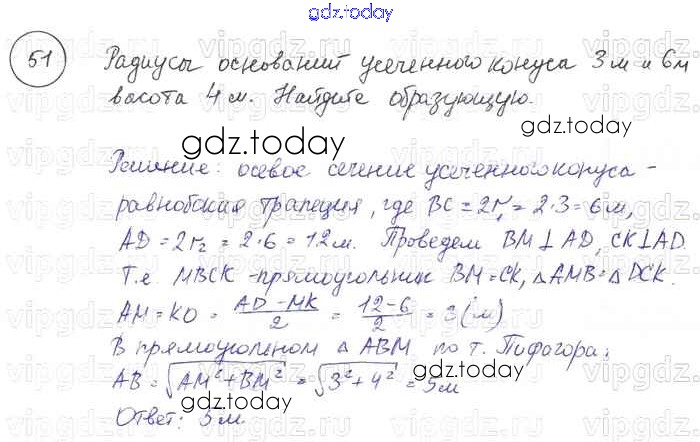 gdz.today
51 Радиусы оснований усеченного конуса 3м и 6м
высота 4 м. Найдите образующую.
gdz.today
Решение: осевое сечение усеченного конуса -
равнобокая трапеция, где BC = 2r₁ = 2·3 = 6м,
AD = 2r₂ = 2·6 = 12м. Проведем BM⊥AD, CK⊥AD.
Т.е. MBCK - прямоугольник BM=CK, △AMB=△DCK.
AM = KD = (AD - MK)/2 = (12-6)/2 = 3(м)
В прямоугольном △ ABM по т. Пифагора:
AB = √(AM² + BM²) = √(3² + 4²) = 5м
gdz.today
Ответ: 5м.